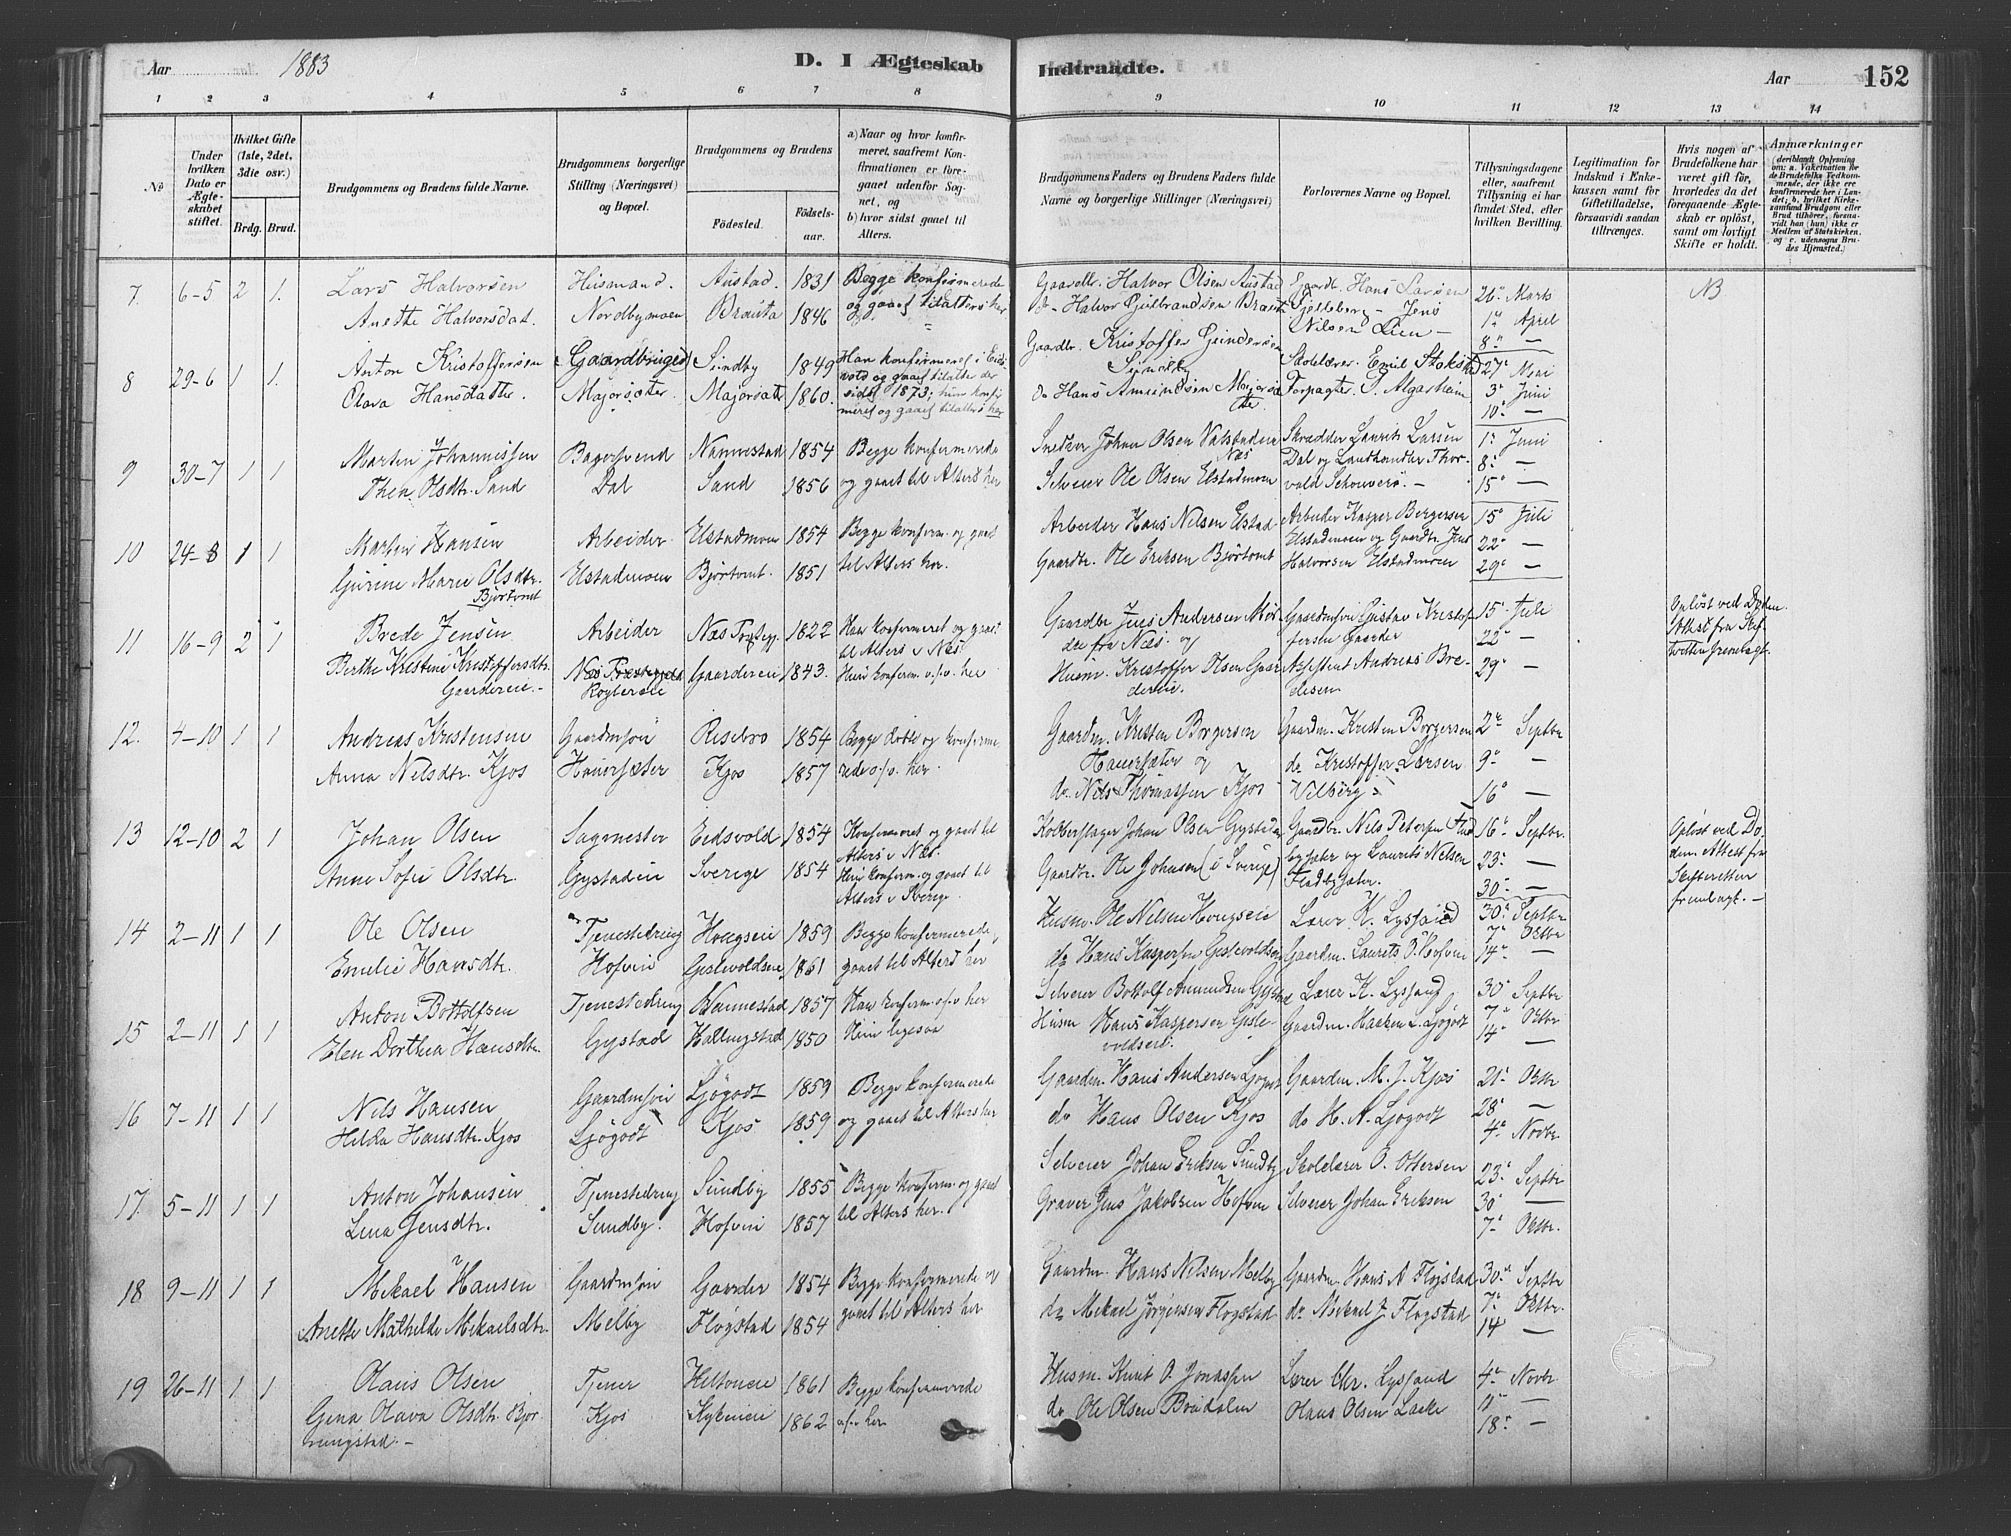 Aar 1883
D. I Ægteskab Indtraadte.
Aar 152
1 2 3 4 5 6 7 8 9 10 11 12 13 14
№
Under hvilken Dato er Ægteskabet stiftet.
Hvilket Gifte (1ste, 2det, 3die osv.)
Brdg. Brud.
Brudgommens og Brudens fulde Navne.
Brudgommens borgerlige Stilling (Næringsvei) og Bopæl.
Brudgommens og Brudens
Fødested. Fødselsaar.
a) Naar og hvor konfirmeret, saafremt Konfirmationen er foregaaet udenfor Sognet, og
b) hvor sidst gaaet til Alters.
Brudgommens Faders og Brudens Faders fulde Navne og borgerlige Stillinger (Næringsvei)
Forlovernes Navne og Bopæl.
Tillysningsdagene eller, saafremt Tillysning ei har fundet Sted, efter hvilken Bevilling.
Legitimation for Indskud i Enkekassen samt for Giftetilladelse, forsaavidt saadan tiltrænges.
Hvis nogen af Brudefolkene har været gift før, hvorledes da det foregaaende Ægteskab er opløst, samt om lovligt Skifte er holdt.
Anmærkninger (deriblandt Oplysning om: a. Vakcination for de Brudefolks Vedkommende, der ikke ere konfirmerede her i Landet; b. hvilket Kirkesamfund Brudgom eller Brud tilhører, forsavidt han (hun) ikke er Medlem af Statskirken, og c. udensogns Brudes Hjemsted.)
7. 6-5 2 1. Lars Halvorsen Husmand. Austad. 1831 Begge konfirmerede Gaardbr. Halvor Olsen Austad Hans Larsen 26 Marts NB
Anette Halvorsdat. Nordbymoen Brauta 1846 og gaaet tilalters her do Halvor Gulbrandsen Jens 1 April
Nilsen Lien 8 —
8 29-6 1 1. Anton Kristoffersen Sundby 1849 Han konfirmeret i Eidsvold og gaaet tilalters der Gaardbr. Kristoffer Emil 27 Mai
Olava Hansdatter Majorsæter. Majorsæt 1860. sidst 1873; hun konfirmeret og gaaet tilalters her do Hans Amundsen Majorsæter. Forpagter 3 Juni
10 —
9 30-7 1 1 Martin Johannissen Bagersvend Nannestad 1854 Begge konfirmerede Snedker Johan Olsen Næs Skrædder Laurits Larsen 1 Juni
Olsdtr. Sand Dal Sand 1856 og gaaet til Alters her Selveier Ole Olsen Elstadmoen Dal og Landhandler Thorvold 8 —
15 —
10 24-8 1 1 Martin Hansen Arbeider Elstadmoen 1854 Begge konfirm. og gaaet Arbeider Hans Nilsen Elstad Arbeider Kasper Bergersen 15 Juli
Gurine Marie Olsdtr. Bjørtomt Elstadmoen Bjørtomt. 1851 til Alters her. Gaardbr. Ole Eriksen Bjørtomt Elstadmoen og Gaardbr. Jens Halvorsen Elstadmoen 22 —
29 —
11 16-9 2 1 Brede Jensen Arbeider Næs Præsteg. 1822 Han konfirmeret og gaaet til Alters i Næs Gaardbr Jens Andersen fra Næs og Gaardmsøn Gustav Kristoffersen Gaarder 15 Juli Opløst ved Døden. Attest fra Skifteretten fremlagt.
22 —
Berthe Kristine Kristoffersdtr. Gaardereie. Gaardereie 1843. Hun konferm. o.s.v. her Husm. Kristoffer Olsen Gaardereie. Assistent Andreas Bredesen 29 —
12. 4-10 1 1 Andreas Kristensen Gaardmsøn Risebro 1854 Begge døbte og konfirmerede o.s.v. her. Gaardm. Kristen Borgersen Haversæter og Gaardm. Kristen Borgersen 2 Septbr
Anna Nilsdtr. Kjos Haversæter Kjos 1857 do Nils Thomassen Kjos do Kristoffer Larsen Vilberg 9 —
16 —
13 12-10 2 1 Johan Olsen Sagmester Eidsvold 1854 Konfirmeret og gaaet til Alters i Næs. Kobberslager Johan Olsen Gystadeie Gaardbr. Nils Petersen 16 Septbr. Opløst ved Døden. Attest fra Skifteretten fremlagt. —
Anne Sofie Olsdtr. Gystadeie Sverige 1854 Hun konferm. og gaaet til Alters i Sverige. Gaardbr. Ole Johnsen (i Sverige) og Laurits Nilsen Fladbysæter. 23 —
30 —
14 2-11 1 1 Ole Olsen Tjenestedreng Haugseie 1859 Begge konfirmerede, Husm. Ole Nilsen Haugseie Lærer K. Lyssand 30 Septbr
Emelie Hansdtr. Hofvin Gislevoldseie 1861 gaaet til Alters her do Hans Kaspersen Gislevoldseie Gaardm. Laurits O. Hofvin 7 Oktbr
14 —
15 2-11 1 1 Anton Bottolfsen Tjenestedreng Nannestad 1857 Han konferm. o.s.v her Selveier Bottolf Amundsen Gystad Lærer K. Lyssand 30 Septbr
Elen Dorthea Hansdtr. Gystad Kallungstad 1850 Hun ligesaa Husm Hans Kaspersen Gislevoldseie. Gaardm. Haaken L. Ljøgodt 7 Oktbr
14 —
16 7-11 1 1 Nils Hansen Gaardmsøn Ljøgodt 1859 Begge konfirmerede Gaardm. Hans Andersen Ljøgodt Gaardm. M. J. Kjos 21 Oktbr
Hilda Hansdtr. Kjos Ljøgodt Kjos 1859 og gaaet til Alters her do Hans Olsen Kjos do H. A. Ljøgodt 28 —
4 Novbr
17. 5-11 1 1 Anton Johansen Tjenestedreng Sundby 1855 Begge konferm. og gaaet Selveier Johan Eriksen Sundby Skolelærer O. Ottersen 23 Septbr
Lina Jensdtr. Sundby. Hofvin 1857 til Alters her. Graver Jens Jakobsen Hofvin Selveier Johan Eriksen 30 —
7 Oktbr.
18 9-11 1 1 Mikael Hansen Gaardmsøn Gaarder 1854 Begge konfirmerede og Gaardm. Hans Nilsen Melby Gaardm. Hans A Fløgstad 30 Septbr
Anette Mathilde Mikaelsdtr. Melby Fløgstad 1854 gaaet til Alters her do Mikael Jørgensen Flogstad do Mikael J. Flogstad 7 Oktbr.
14 —
19 26-11 1 1 Olaus Olsen Tjener Heltoneie 1861 Begge konfirmerede Husm. Knut O. Jonassen Lærer Chr. Lyssand 4 Novbr
Gina Olava Olsdtr. Kjos 1862 o.s.v. her do Ole Olsen Olaus Olsen 11 —
18 —